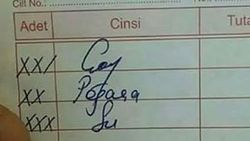 Cilt No.:
Adet Cinsi Tuta
XXI Çay
XX Poğaça
XXX Su